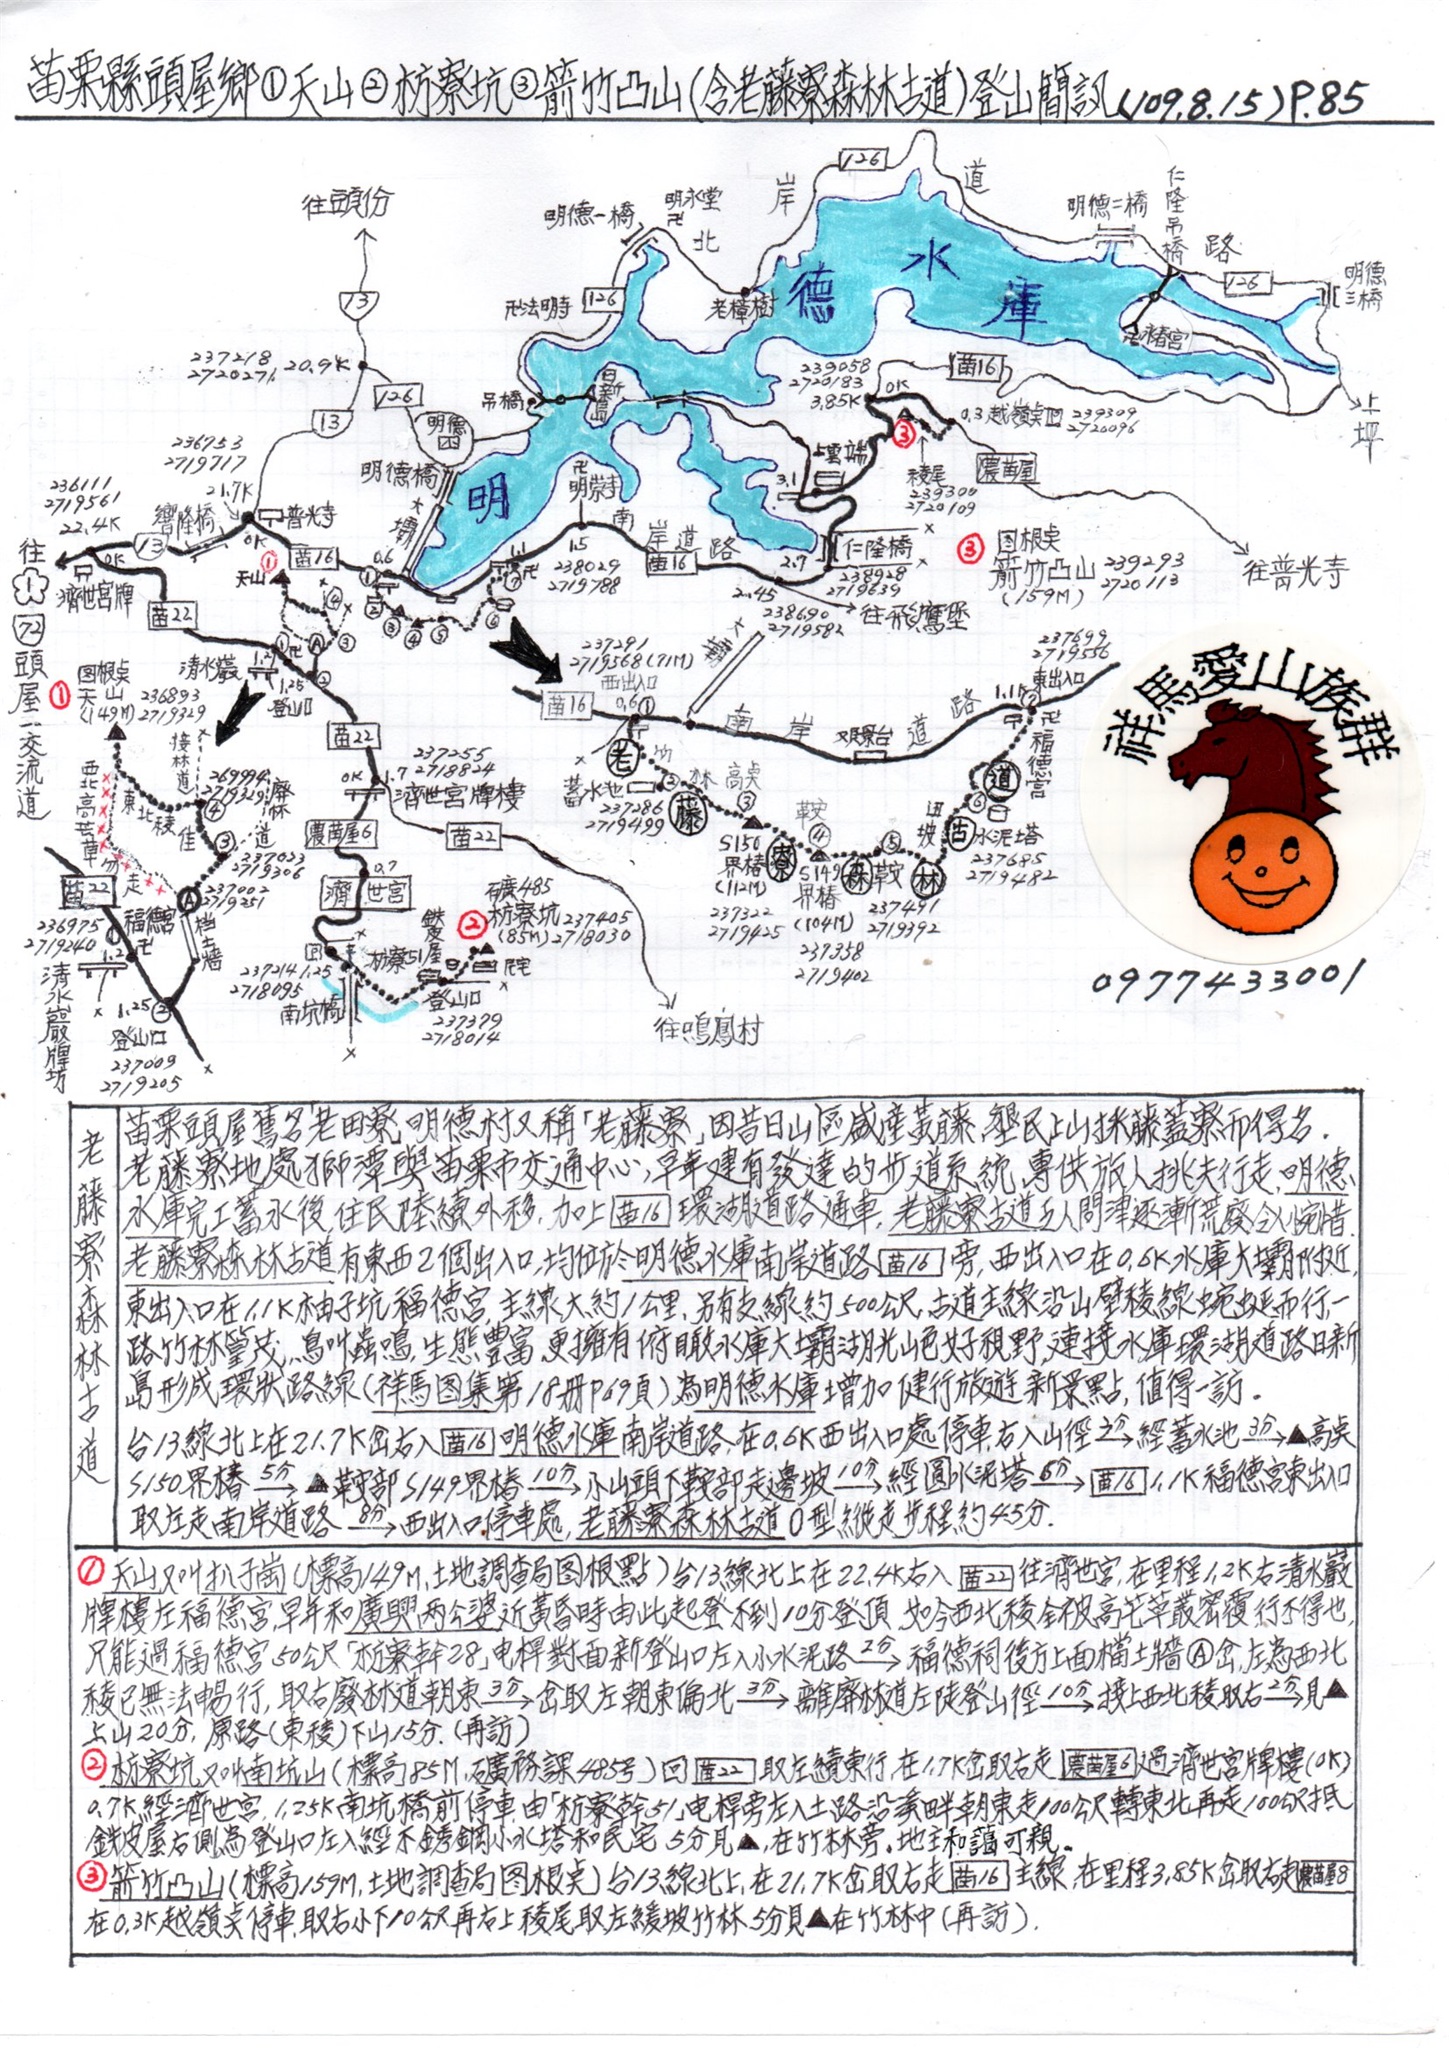 苗栗縣頭屋鄉①天山②枋寮坑③箭竹凸山(含老藤寮森林古道)登山簡訊(109.8.15)P.85
往頭份
13
237218
2720271
20.9K
13
126
明德
236753
2719717
21.7K
236111
2719561
22.4K
0K
往
1
72
頭屋二交流道
13
濟世宮牌
普光寺
0K
苗16
0.6
天山
苗22
清水巖
1.2
1.25
登山口
明德一橋
明永堂
卍
北
岸
126
道
明德二橋
仁隆吊橋
路
126
明德三橋
上坪
卍法明寺
126
老樟樹
明德水庫
永春宮
吊橋
日新島
明德橋
壩
卍
明崇寺
1.5
238029
2719788
南
岸道路
苗16
2.45
238690
2719582
2.7
仁隆橋
238928
2719639
往飛鷹堡
239058
2720183
3.85K
0K
苗16
0.3越嶺點
239309
2720096
農苗屋
往普光寺
上雲端
3.1
③
稜尾
239300
2720109
③
图根點
箭竹凸山
(159M)
239293
2720113
①
图根點
天山
(149M)
236893
2719329
接林道
西北高芒草
勿走
東北稜
④
廢林道
③
237023
2719306
Ⓐ
237002
2719251
檔土牆
苗22
236975
2719240
福德宮
1.2
卍
清水巖牌坊
1.25
登山口
237009
2719205
苗22
237255
2718824
0K
1.7
濟世宮牌樓
農苗屋6
苗22
0.7
濟世宮
P
237214
2718095
1.25
南坑橋
枋寮51
鐵皮屋
登山口
237379
2718014
②
礦485
枋寮坑
(85M)
237405
2718030
民宅
往鳴鳳村
237291
2719568(71M)
西出入口
0.6
苗16
南岸道路
觀景台
壩
237699
2719556
東出入口
1.1
卍福德宮
老藤寮森林古道
蓄水池
237286
2719499
竹林
高點
③
S150
界樁
(112M)
237322
2719425
鞍
④
S149
界樁
(104M)
237358
2719402
⑤
鞍
237491
2719392
坡
⑥
水泥土塔
237685
2719482
祥馬愛山族群
0977433001
老藤寮森林古道
苗栗頭屋舊名「老田寮」,明德村又稱「老藤寮」因昔日山區盛產黃藤,墾民上山採藤蓋寮而得名.
老藤寮地處獅潭與苗栗市交通中心,早年建有發達的步道系統,專供旅人挑夫行走,明德
水庫完工蓄水後,住民陸續外移,加上苗16環湖道路通車,老藤寮古道乏人問津逐漸荒廢令人惋惜.
老藤寮森林古道有東西2個出入口,均位於明德水庫南岸道路苗16旁,西出入口在0.6K水庫大壩附近,
東出入口在1.1K柚子坑福德宮,主線大約1公里,另有支線約500公尺,古道主線沿山壁稜線蜿蜒而行一
路竹林篁茂,鳥叫蟲鳴,生態豐富,更擁有俯瞰水庫大壩湖光山色好視野,連接水庫環湖道路日新
島形成環狀路線(祥馬图集第18冊P69頁)為明德水庫增加健行旅遊新景點,值得一訪.
台13線北上在21.7K岔右入苗16明德水庫南岸道路,在0.6K西出入口處停車右入山徑2分→經蓄水池3分→▲高點
S150界樁5分→▲鞍部S149界樁10分→小山頭下鞍部走邊坡10分→經圓水泥塔5分→苗16 1.1K福德宮東出入口
取左走南岸道路8分→西出入口停車處,老藤寮森林古道O型縱走步程約45分.
①天山又叫扒子崗(標高149M,土地調查局图根點)台13線北上在22.4K右入苗22往濟世宮,在里程1.2K右清水巖
牌樓左福德宮,早年和廣興两公婆近黃昏時由此起登不到10分登頂,如今西北稜全被高芒草叢密覆行不得也,
只能過福德宮50公尺「枋寮幹28」电桿對面新登山口左入小水泥路2分→福德祠後方上面檔土牆Ⓐ岔,左為西北
稜已無法暢行,取右廢林道朝東3分→岔取左朝東偏北3分→離廢林道左陡登山徑10分→接上西北稜取右2分→見▲
上山20分,原路(東稜)下山15分.(再訪)
②枋寮坑又叫南坑山(標高85M,礦務課485号)回苗22取左續東行,在1.7K岔取右走農苗屋6過濟世宮牌樓(0K)
0.7K經濟世宮,1.25K南坑橋前停車,由「枋寮幹51」电桿旁左入土路沿溪畔朝東走100公尺轉東北再走100公尺抵
鐵皮屋右側為登山口左入經不銹鋼小水塔和民宅5分見▲,在竹林旁,地主和藹可親.
③箭竹凸山(標高159M,土地調查局图根點)台13線北上,在21.7K岔取右走苗16主線,在里程3.85K岔取右走農苗屋8
在0.3K越嶺點停車,取右小下10公尺再右上稜尾取左緩坡竹林5分見▲在竹林中(再訪).